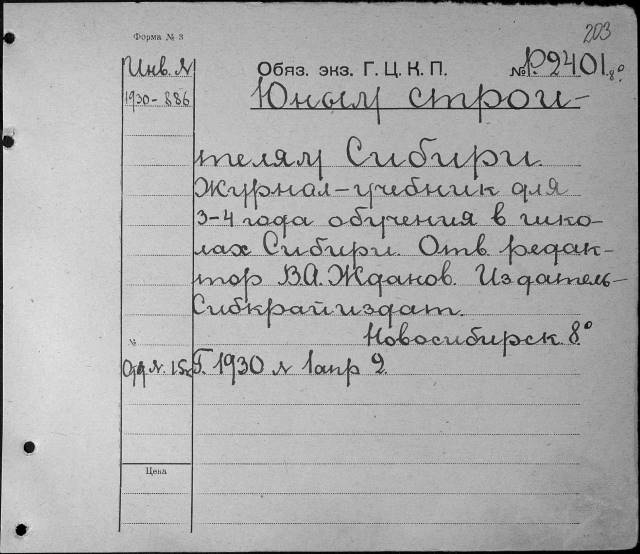 203
Форма № 3
Инв. №
Обяз. экз. Г. Ц. К. П. № Р.2401 8º
1930-886
Юным строи-
телям Сибири.
Журнал-учебник для
3-4 года обучения в шко-
лах Сибири. Отв. редак-
тор В.А. Жданов. Издатель-
Сибкрайиздат.
Новосибирск 8º
№
Г. 1930 № 1 апр 2.
Цена